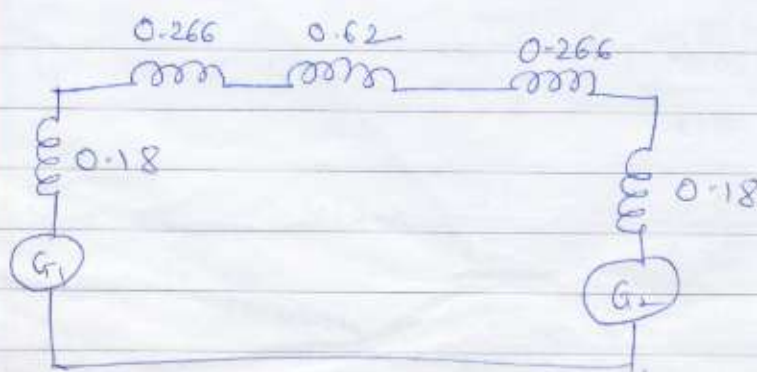 0.266 0.62 0.266
0.18 0.18
G1 G2